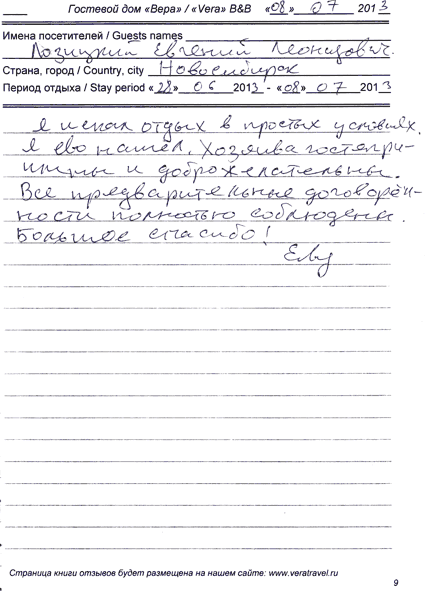 Гостевой дом «Вера» / «Vera» B&B «08» 07 2013
Имена посетителей / Guests names
Лозицкий Евгений Леонидович.
Страна, город / Country, city Новосибирск
Период отдыха / Stay period «28» 06 2013 - «08» 07 2013
Я искал отдых в простых условиях.
Я его нашел. Хозяева гостепри-
имны и доброжелательны.
Все предварительные договорён-
ности полностью соблюдены.
Большое спасибо!
Страница книги отзывов будет размещена на нашем сайте: www.veratravel.ru
9